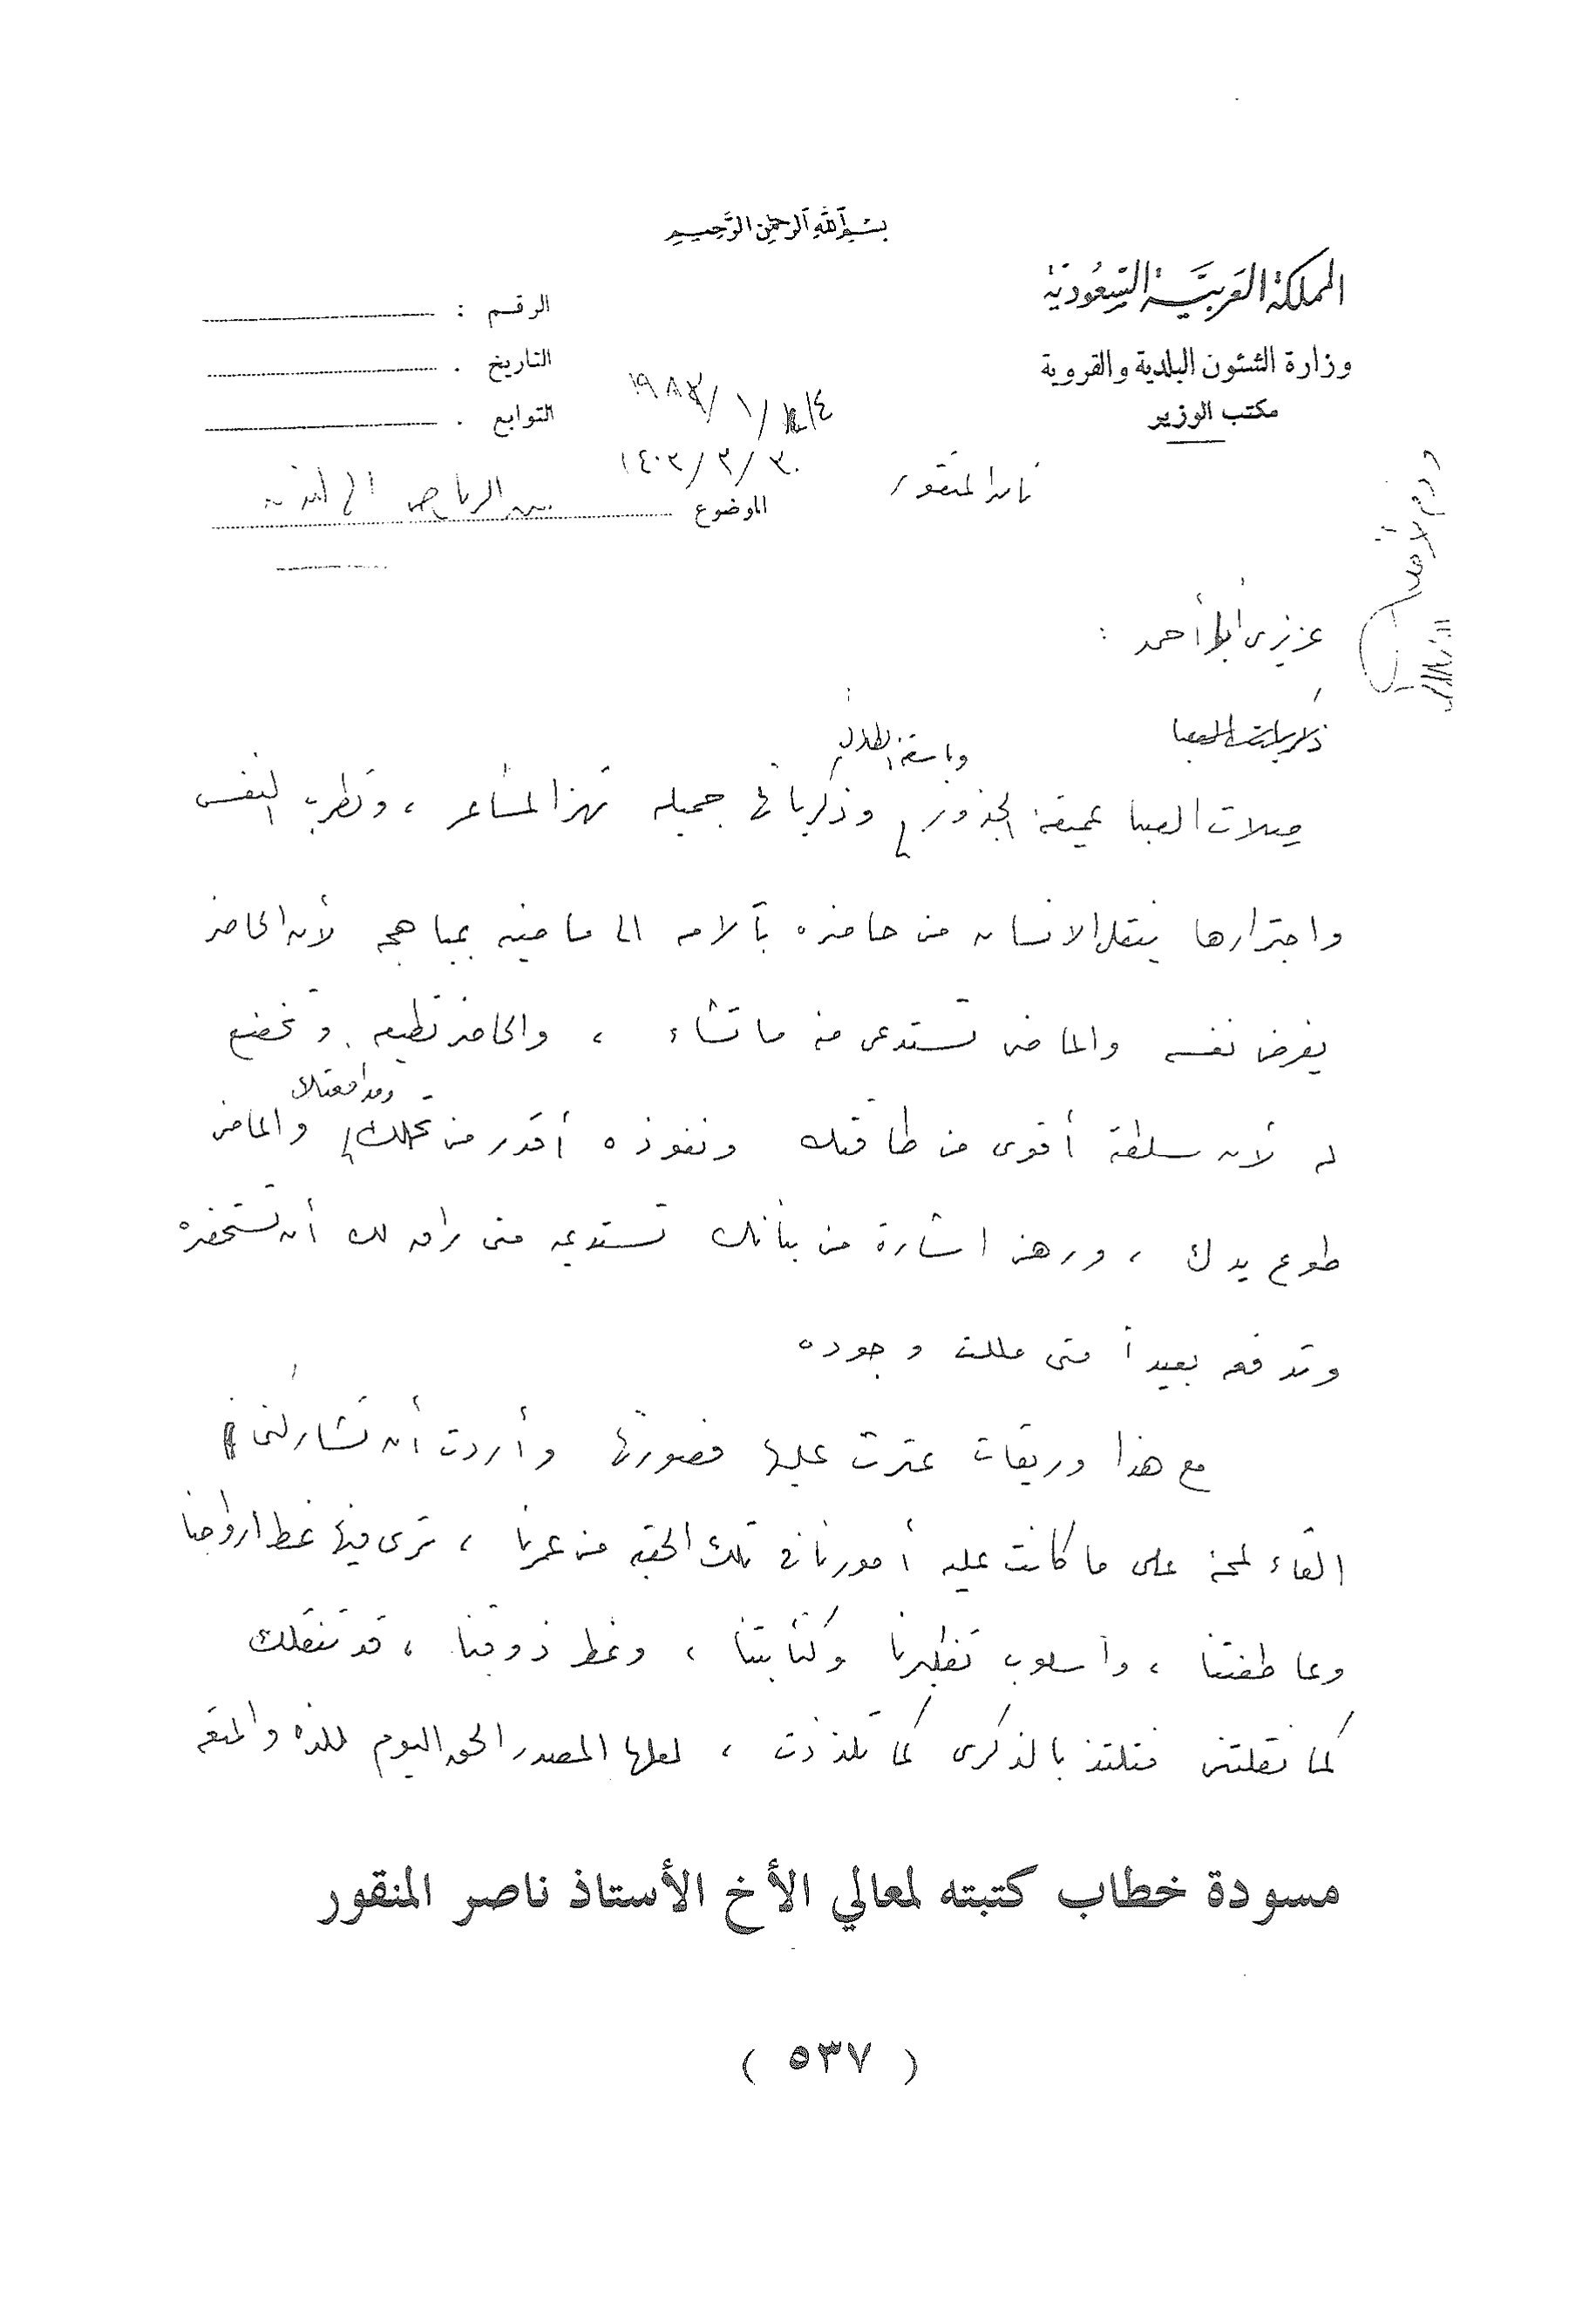 بسم الله الرحمن الرحيم
المملكة العربية السعودية
وزارة الشئون البلدية والقروية
مكتب الوزير
الرقم :
التاريخ .
التوابع .
١٤/١/١٩٨٣
٣٠/٣/١٤٠٣
ناصر المنقور
الموضوع من الرياض الى لندن
عزيزي أبا أحمد :
ذكريات الصبا
وباسقة الظلال
صلات الصبا عميقة الجذور وذكرياتها جميله تهز المشاعر ، وتطرب النفس
واجترارها ينقل الانسان من حاضره بآلامه الى ماضيه بمباهجه لأن الحاضر
يفرض نفسه والماضي تستدعي منه ما تشاء ، والحاضر تطيعه وتخضع
له لأن سلطته أقوى من طاقتك ونفوذه أقدر من تحملك والماضي
طوع يدك ، ورهن اشارة من بنانك تستدعيه متى راق لك أن تستحضره
وتدفعه بعيداً متى مللت وجوده
مع هذا وريقات عثرت عليها فصورتها وأردت أن تشاركني
القاء لمحة على ما كانت عليه أمورنا في تلك الحقبة من عمرنا ، ترى فيها نمط ارواحنا
وعاطفتنا ، وأسلوب تفكيرنا وكتابتنا ، ونمط ذوقنا ، قد تنقلك
كما نقلتني فتلتذ بالذكرى كما تلذذت ، لعلها المصدر الحق اليوم للذه والمتعه
مسودة خطاب كتبته لمعالي الأخ الأستاذ ناصر المنقور
( ٥٣٧ )